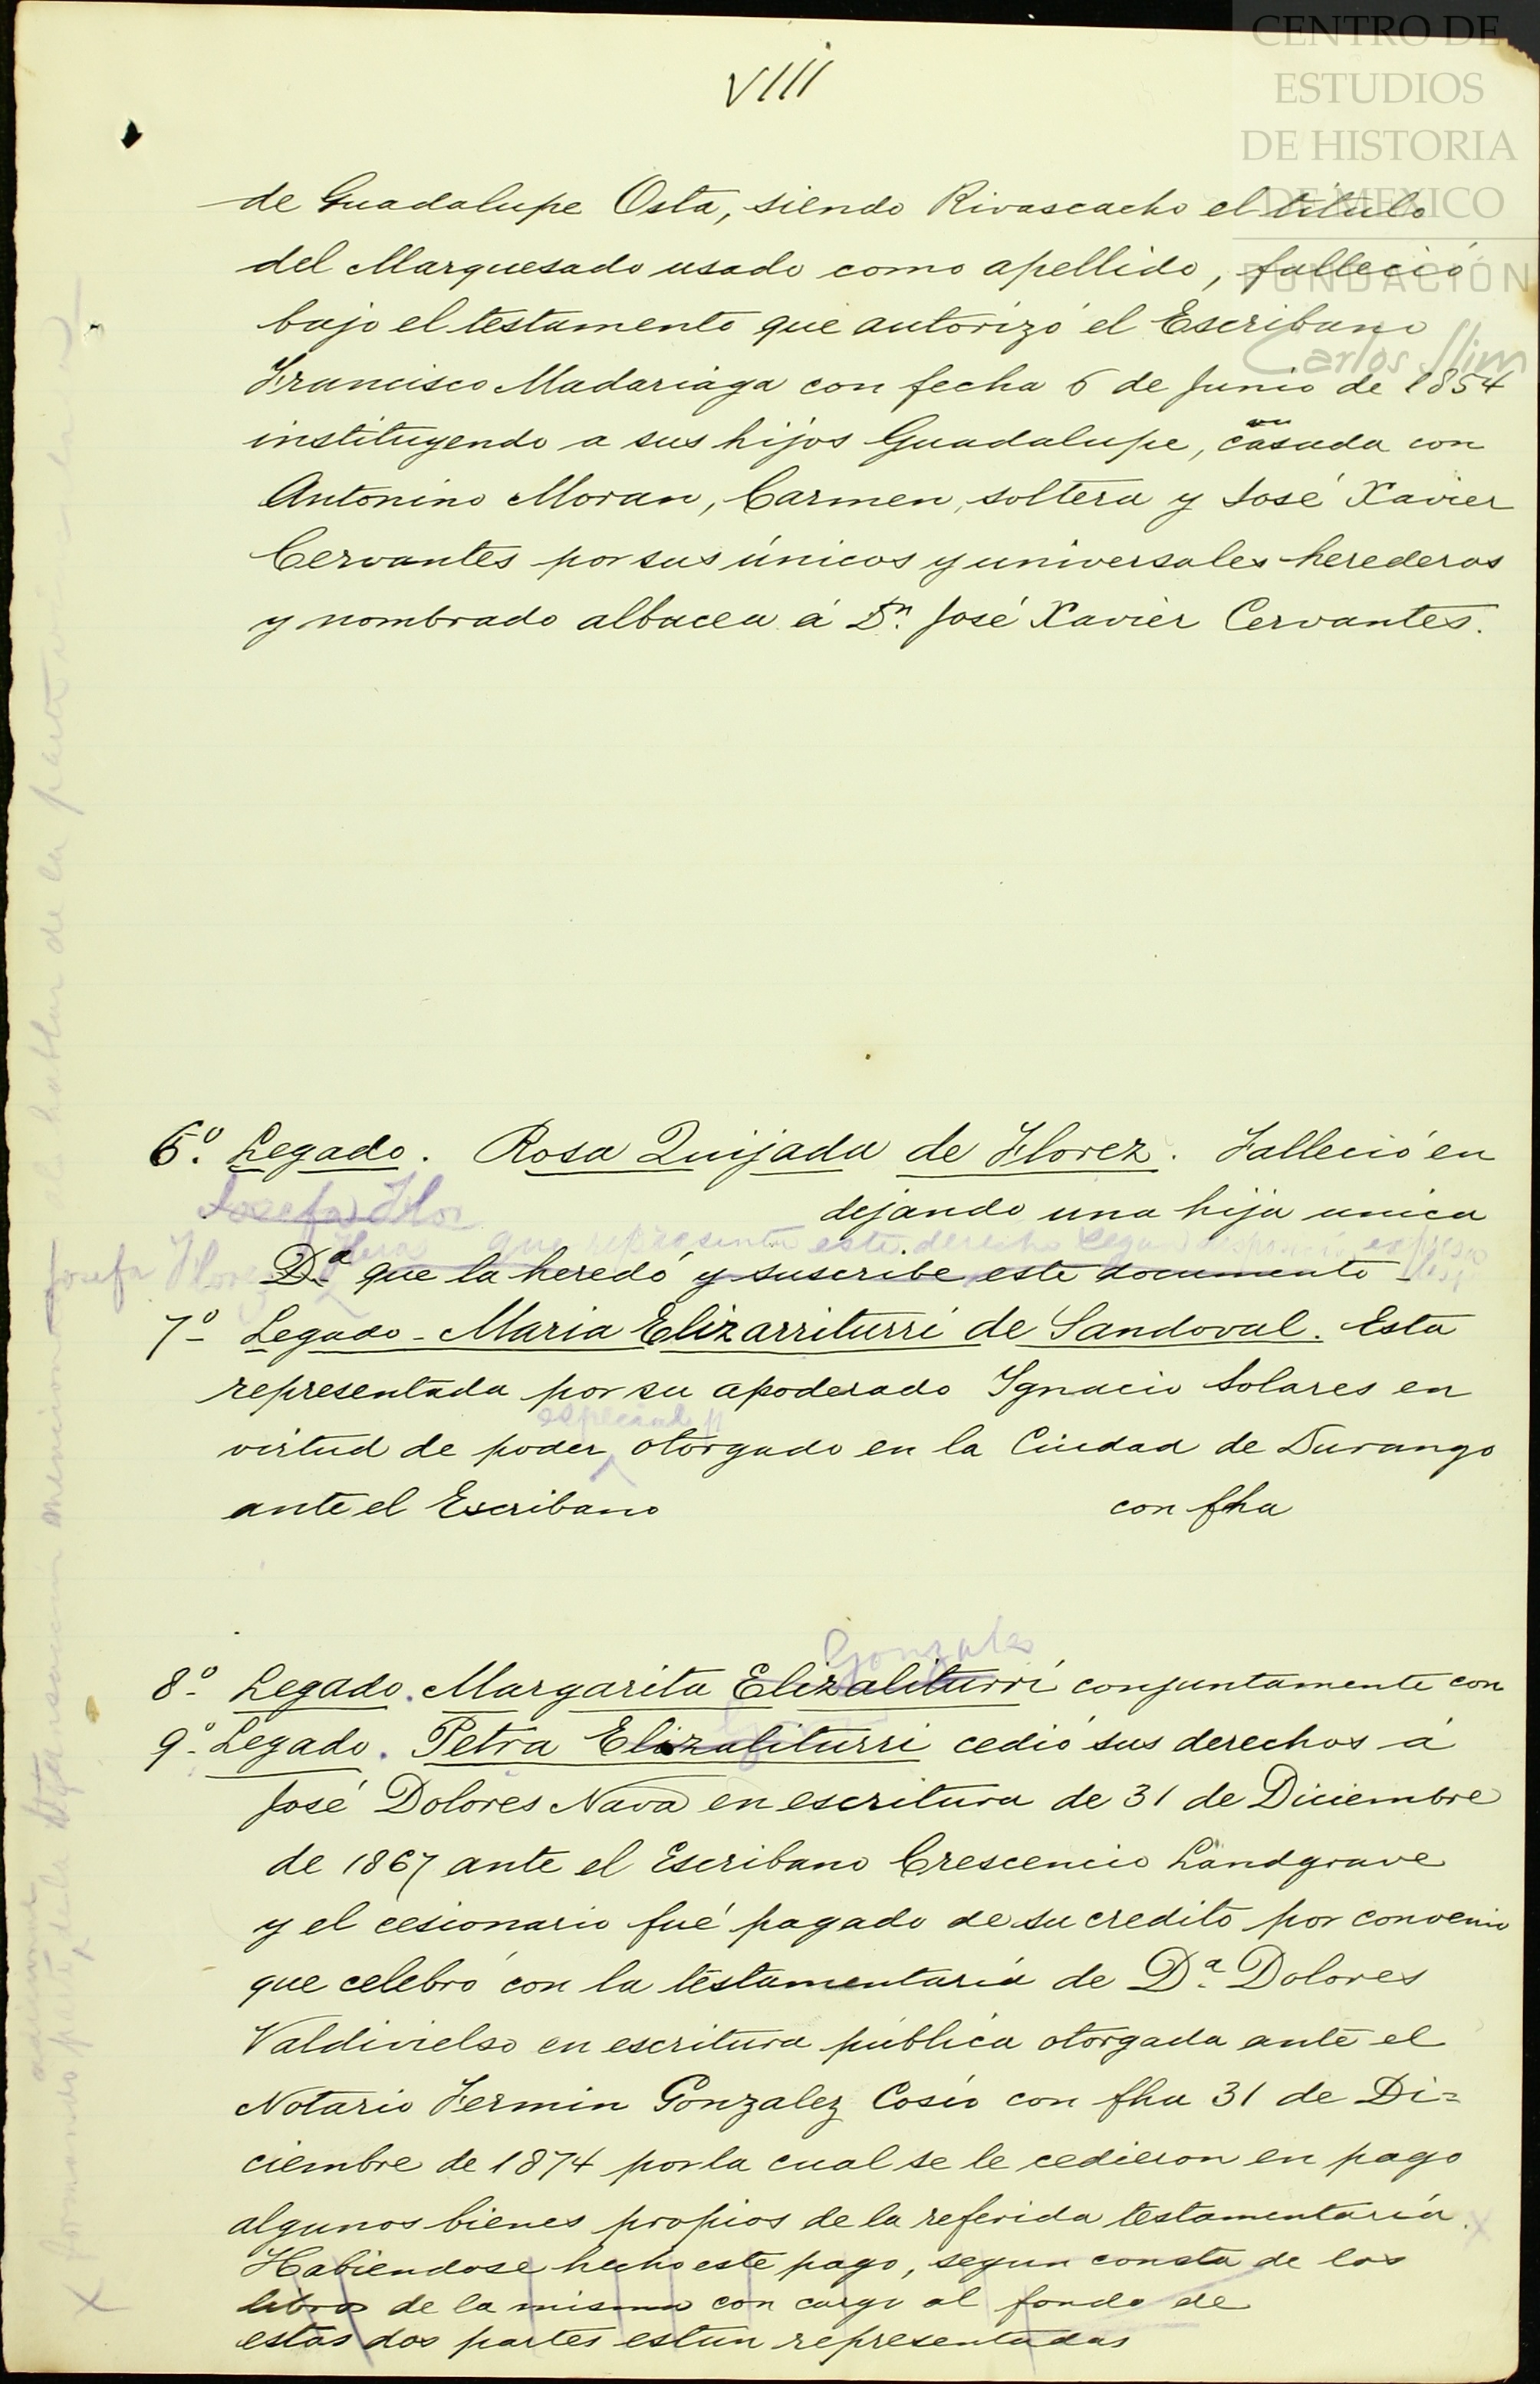 VIII
CENTRO DE
ESTUDIOS
DE HISTORIA
DE MEXICO
FUNDACIÓN
Carlos Slim
de Guadalupe Osta, siendo Rivascacho el titulo
del Marquesado usado como apellido, falleció
bajo el testamento que autorizó el Escribano
Francisco Madariaga con fecha 6 de Junio de 1854
instituyendo a sus hijos Guadalupe, casada con
Antonino Moran, Carmen, soltera y José Xavier
Cervantes por sus únicos y universales herederos
y nombrado albacea á Dn. José Xavier Cervantes.
6º. Legado. Rosa Quijada de Florez. Falleció en
Josefa Flor
dejando una hija unica
que representa este derecho segun
Josefa Flores
Dª que la heredó y suscribe este documento
7º- Legado - Maria Elizarriturri de Sandoval. Esta
representada por su apoderado Ignacio Solares en
especial p
virtud de poder otorgado en la Ciudad de Durango
ante el Escribano con fha
Gonzales
8º- Legado. Margarita Elizaliturri conjuntamente con
9º- Legado. Petra Elizaliturri cedió sus derechos á
José Dolores Nava en escritura de 31 de Diciembre
de 1867 ante el Escribano Crescencio Landgrave
y el cesionario fué pagado de su credito por convenio
que celebró con la testamentaría de Dª Dolores
Valdivielso en escritura pública otorgada ante el
Notario Fermin Gonzalez Cosio con fha 31 de Di=
ciembre de 1874 por la cual se le cedieron en pago
algunos bienes propios de la referida testamentaría. X
Habiendose hecho este pago, segun consta de los
libros de la misma con cargo al fondo de
estas dos partes estan representadas
X formando parte de la transaccion mencionada al hablar de la parte